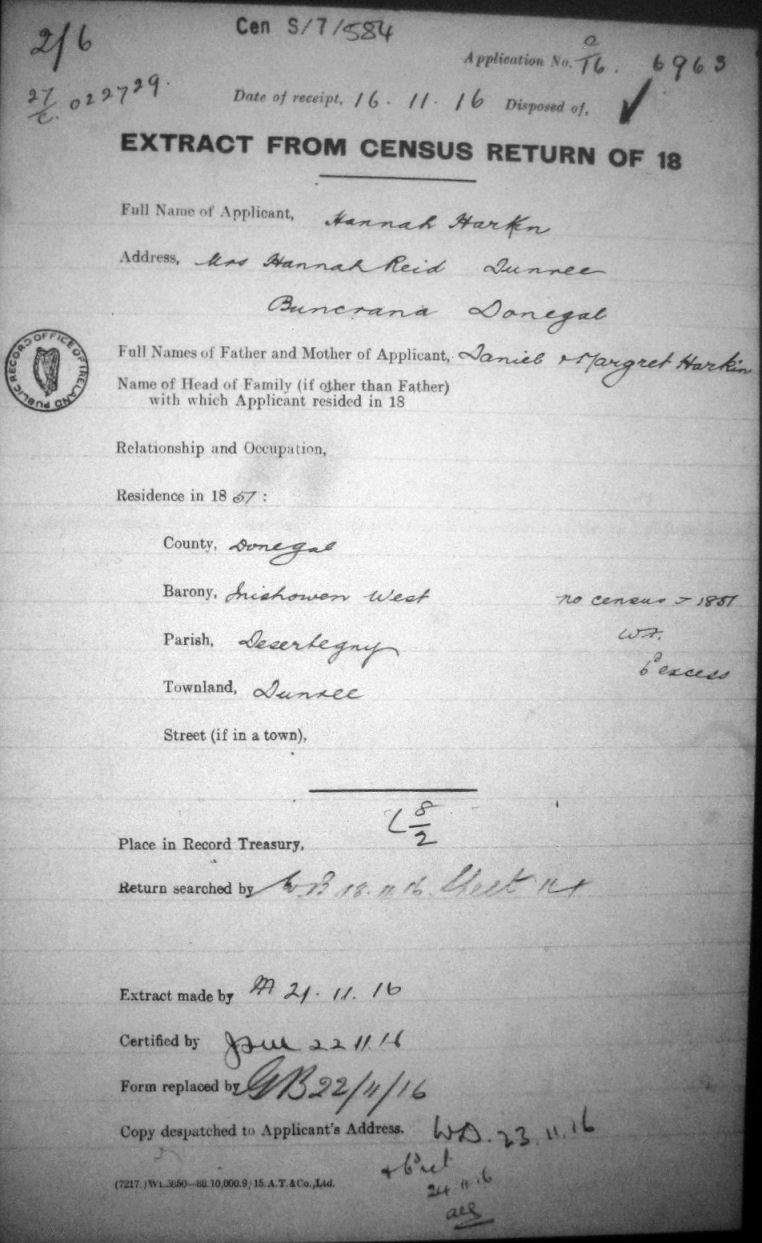 2/6
Cen S/7/584
Application No. a/16. 6963
27/C. 022729.
Date of receipt, 16. 11. 16 Disposed of, ✓
EXTRACT FROM CENSUS RETURN OF 18
Full Name of Applicant, Hannah Harkin
Address, Mrs Hannah Reid Dunree
Buncrana Donegal
PUBLIC RECORD OFFICE OF IRELAND
Full Names of Father and Mother of Applicant, Daniel + Margret Harkin
Name of Head of Family (if other than Father)
with which Applicant resided in 18
Relationship and Occupation,
Residence in 1851 :
County, Donegal
Barony, Inishowen West
no census 1851
Parish, Desertegny
6d excess
Townland, Dunree
Street (if in a town),
8/2
Place in Record Treasury,
Return searched by WB 18.11.16 Sheet
Extract made by 21. 11. 16
Certified by 22 11.16
Form replaced by GB 22/11/16
Copy despatched to Applicant's Address. WD. 23.11.16
+ 6d ret
24.11.16
(7217.)Wt.3850—88.10,000.9/15.A.T.&Co.,Ltd.